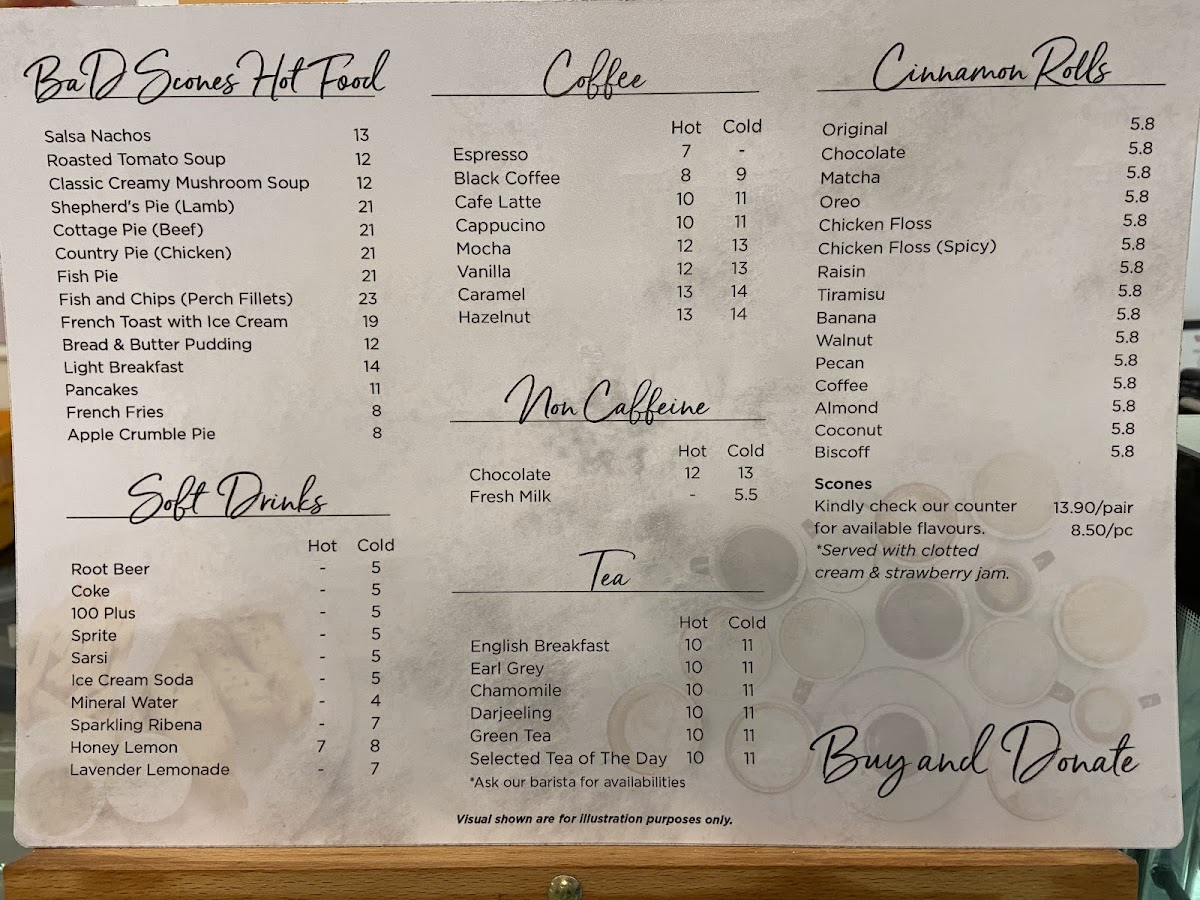 BaD Scones Hot Food
Salsa Nachos 13
Roasted Tomato Soup 12
Classic Creamy Mushroom Soup 12
Shepherd's Pie (Lamb) 21
Cottage Pie (Beef) 21
Country Pie (Chicken) 21
Fish Pie 21
Fish and Chips (Perch Fillets) 23
French Toast with Ice Cream 19
Bread & Butter Pudding 12
Light Breakfast 14
Pancakes 11
French Fries 8
Apple Crumble Pie 8
Soft Drinks
Hot Cold
Root Beer - 5
Coke - 5
100 Plus - 5
Sprite - 5
Sarsi - 5
Ice Cream Soda - 5
Mineral Water - 4
Sparkling Ribena - 7
Honey Lemon 7 8
Lavender Lemonade - 7
Coffee
Hot Cold
Espresso 7 -
Black Coffee 8 9
Cafe Latte 10 11
Cappucino 10 11
Mocha 12 13
Vanilla 12 13
Caramel 13 14
Hazelnut 13 14
Non Caffeine
Hot Cold
Chocolate 12 13
Fresh Milk - 5.5
Tea
Hot Cold
English Breakfast 10 11
Earl Grey 10 11
Chamomile 10 11
Darjeeling 10 11
Green Tea 10 11
Selected Tea of The Day 10 11
*Ask our barista for availabilities
Visual shown are for illustration purposes only.
Cinnamon Rolls
Original 5.8
Chocolate 5.8
Matcha 5.8
Oreo 5.8
Chicken Floss 5.8
Chicken Floss (Spicy) 5.8
Raisin 5.8
Tiramisu 5.8
Banana 5.8
Walnut 5.8
Pecan 5.8
Coffee 5.8
Almond 5.8
Coconut 5.8
Biscoff 5.8
Scones
Kindly check our counter 13.90/pair
for available flavours. 8.50/pc
*Served with clotted
cream & strawberry jam.
Buy and Donate